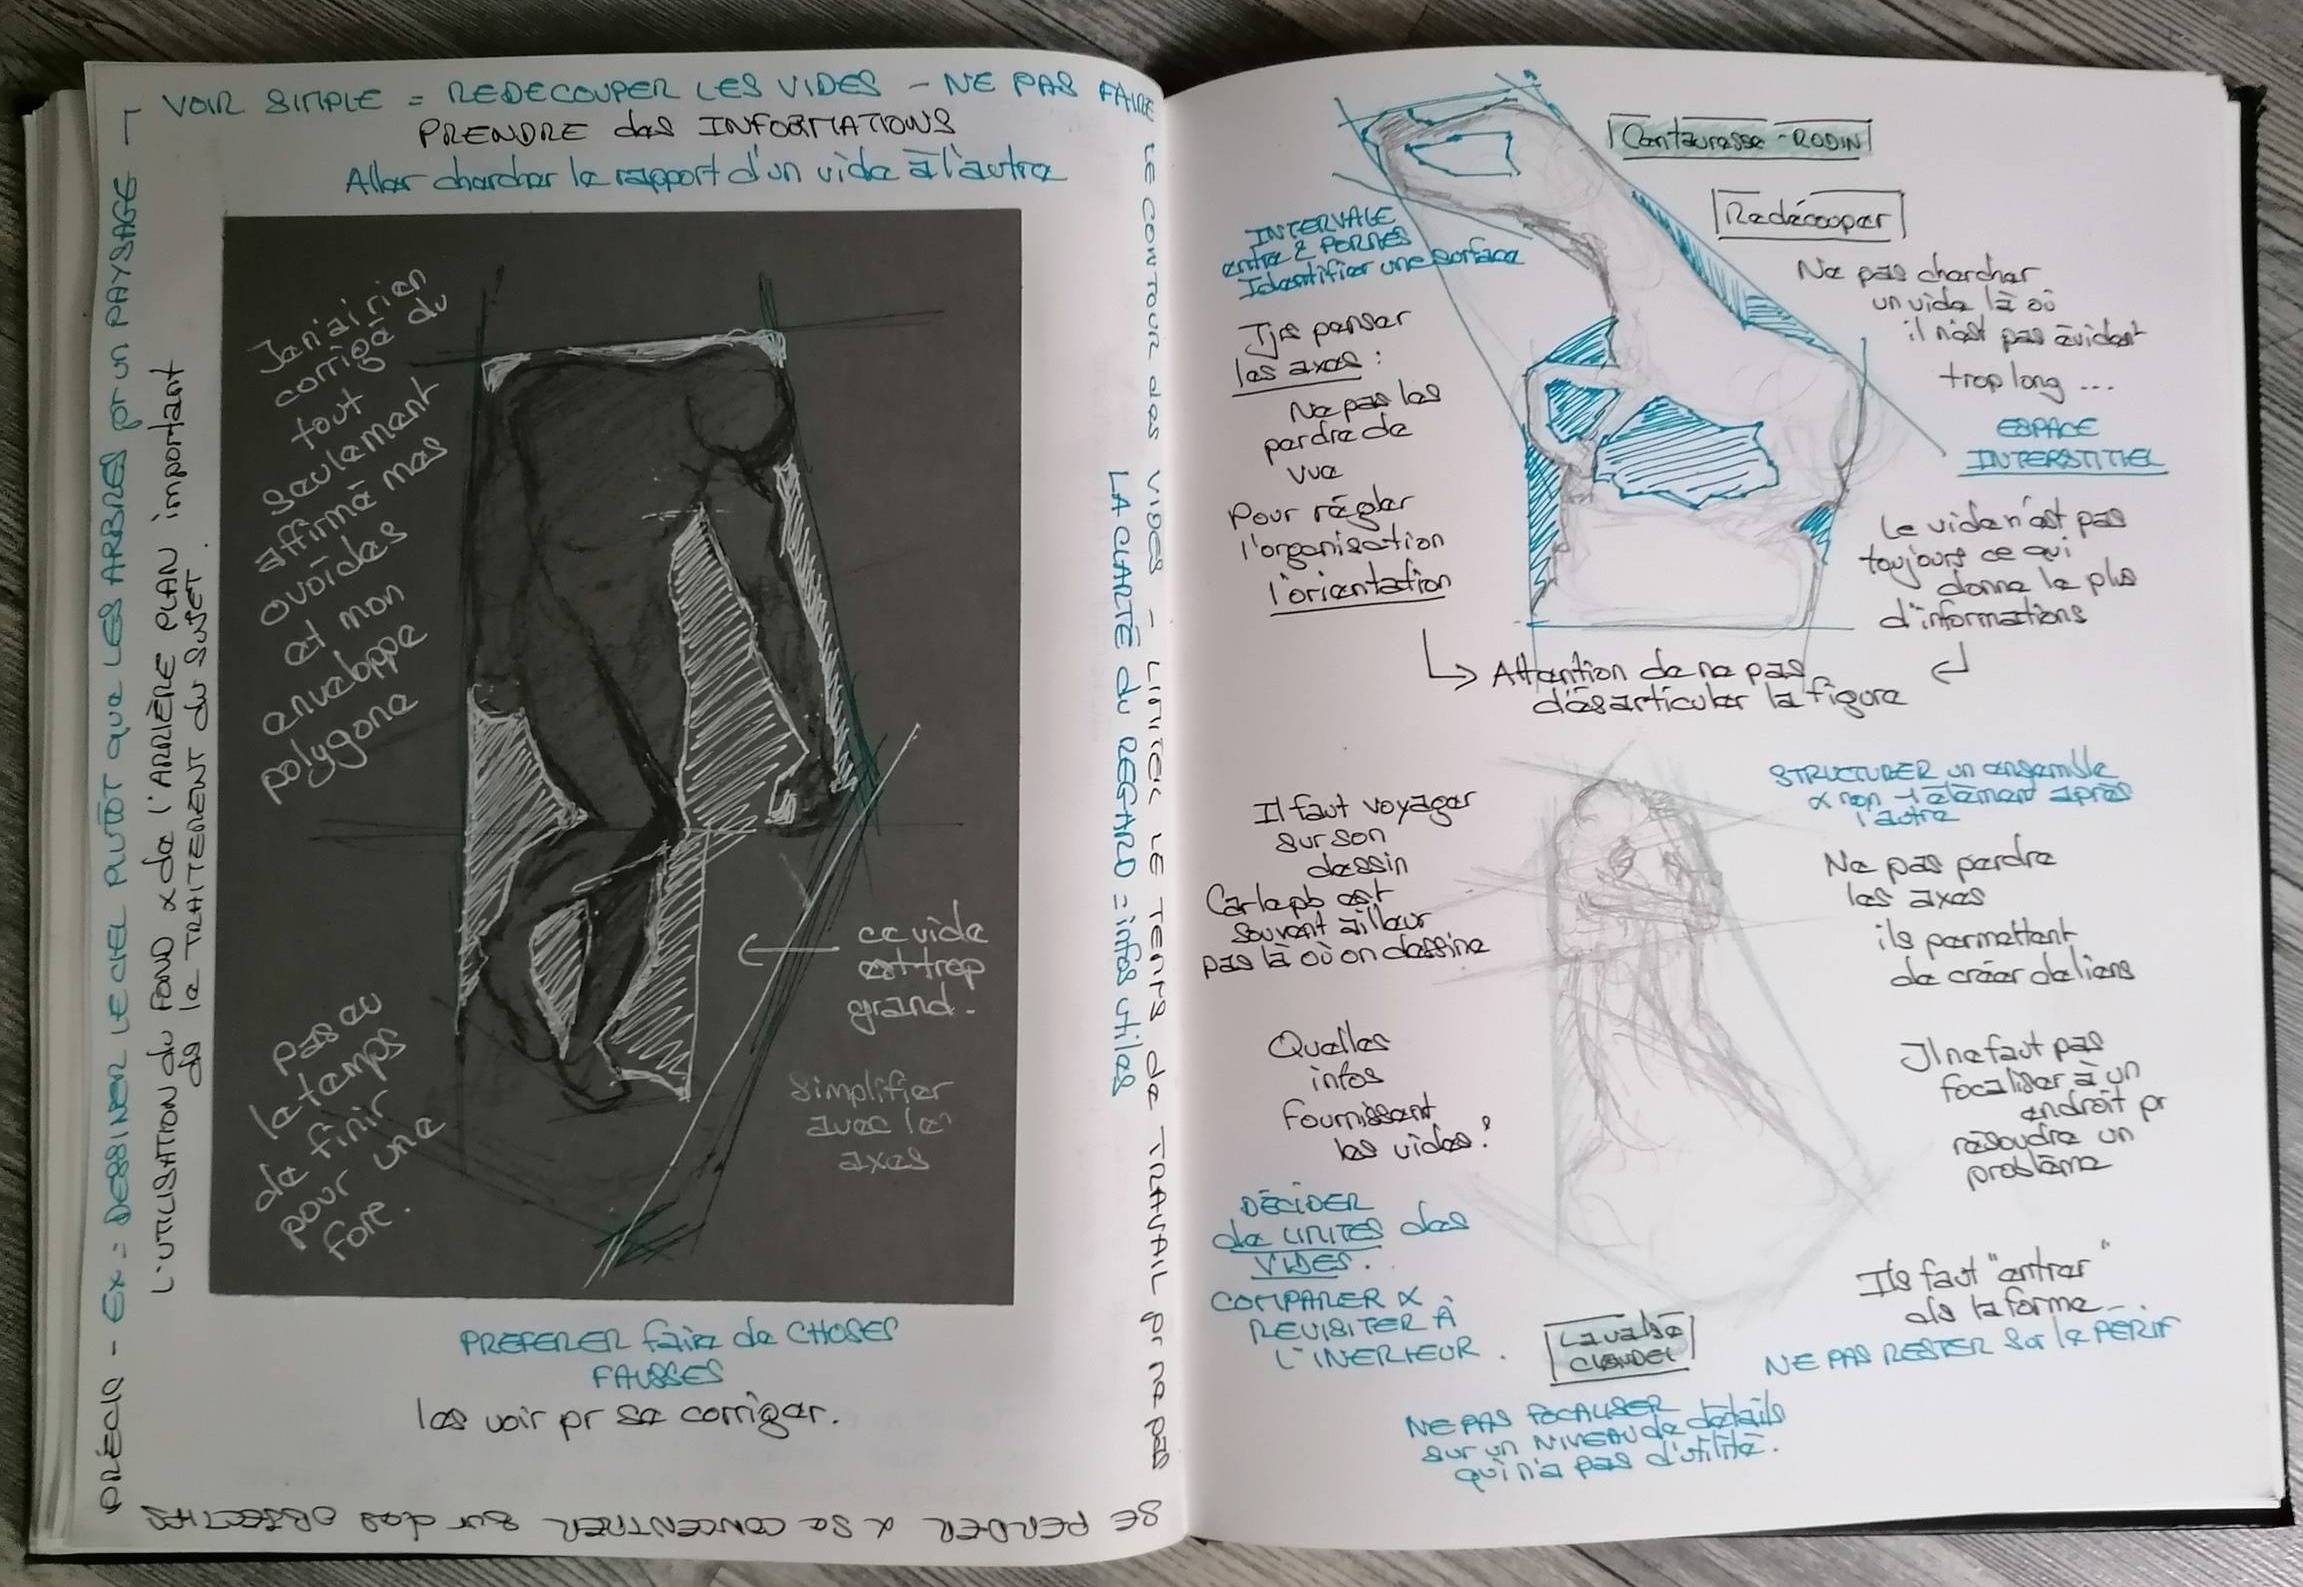 VOIR SIMPLE = REDECOUPER LES VIDES - NE PAS FAIRE
LE CONTOUR des VIDES - LIMITER LE TEMPS de TRAVAIL pr ne pas
SE PERDER & se CONCENTRER sur des OBJECTIFS
PRÉCIS - Ex = DESSINER LE CIEL PLUTÔT que LES ARBRES pr un PAYSAGE -
PRENDRE des INFORMATIONS
Aller chercher le rapport d'un vide à l'autre
L'UTILISATION du FOND & de l'ARRIÈRE PLAN important
ds le TRAITEMENT du SUJET.
LA CLARTÉ du REGARD = infos utiles
Jen'ai rien
corrigé du
tout
seulement
affirmé mes
ovoïdes
et mon
enveloppe
polygone
pas eu
le temps
de finir
pour une
fore.
ce vide
est trop
grand.
simplifier
avec le
axes
PREFERER faire de CHOSES
FAUSSES
les voir pr se corriger.
Centauresse - RODIN
Redécouper
INTERVALE
entre 2 FORMES
Identifier une surface
Tjrs penser
les axes :
Ne pas les
perdre de
vue
Pour régler
l'organisation
l'orientation
Ne pas chercher
un vide là où
il n'est pas évident
trop long ...
ESPACE
INTERSTITIEL
Le vide n'est pas
toujours ce qui
donne le plus
d'informations
Attention de ne pas
désarticuler la figure
Il faut voyager
sur son
dessin
Car le pb est
souvent ailleur
pas là où on dessine
Quelles
infos
fournissent
les vides?
DÉCIDER
de UNITES des
VIDES.
COMPARER &
REVISITER À
L'INERIEUR.
STRUCTURER un ensemble
& non 1 élément après
l'autre
Ne pas perdre
les axes
ils permettent
de créer de liens
Il ne faut pas
focaliser à un
endroit pr
résoudre un
problème
Ils faut "entrer"
ds la forme
NE PAS RESTER sur le PERIF
La valse
CLAUDEL
NE PAS FOCALISER
sur un NIVEAU de détails
qui n'a pas d'utilité.